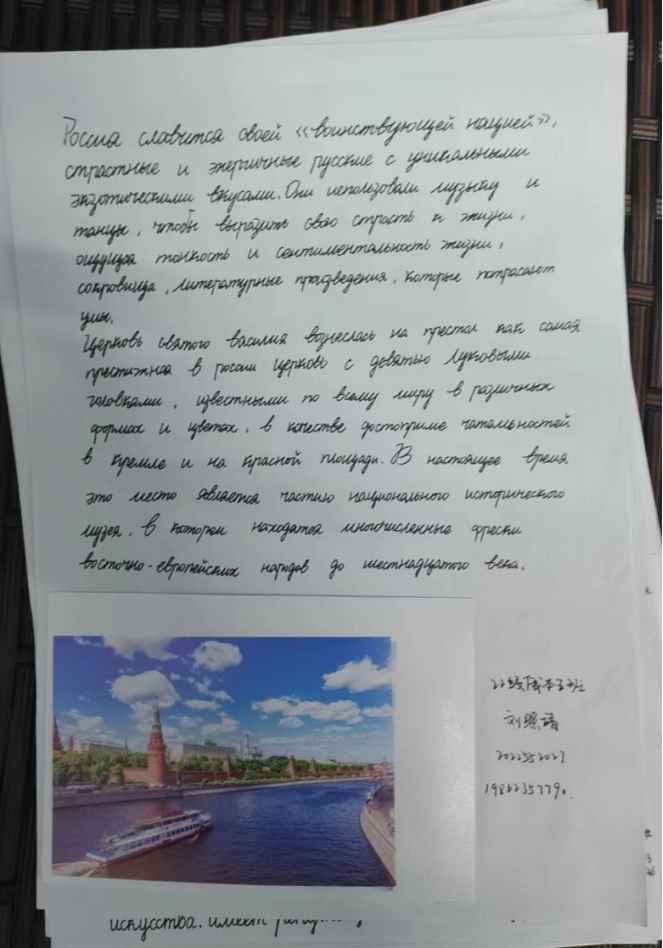 Россиа славится своей «воинствующей нацией»,
страстные и энергичные русские с уникальными
экзотическими вкусами. Они использовали музыку и
танцы, чтобы выразить свою страсть к жизни,
ощущая тонкость и сентиментальность жизни,
сокровища, литературные произведения, которые потрясают
умы.
Церковь святого василия вознеслась на престол как самая
престижная в россии церковь с девятью луковыми
головками, известными по всему миру в различных
формах и цветах, в качестве достоприме чательностей
в кремле и на красной площади. В настоящее время
это место является частию национального исторического
музея, в котором находятся многочисленные фрески
восточно-европейских народов до шестнадцатого века.
2022552027
искусства, имеет